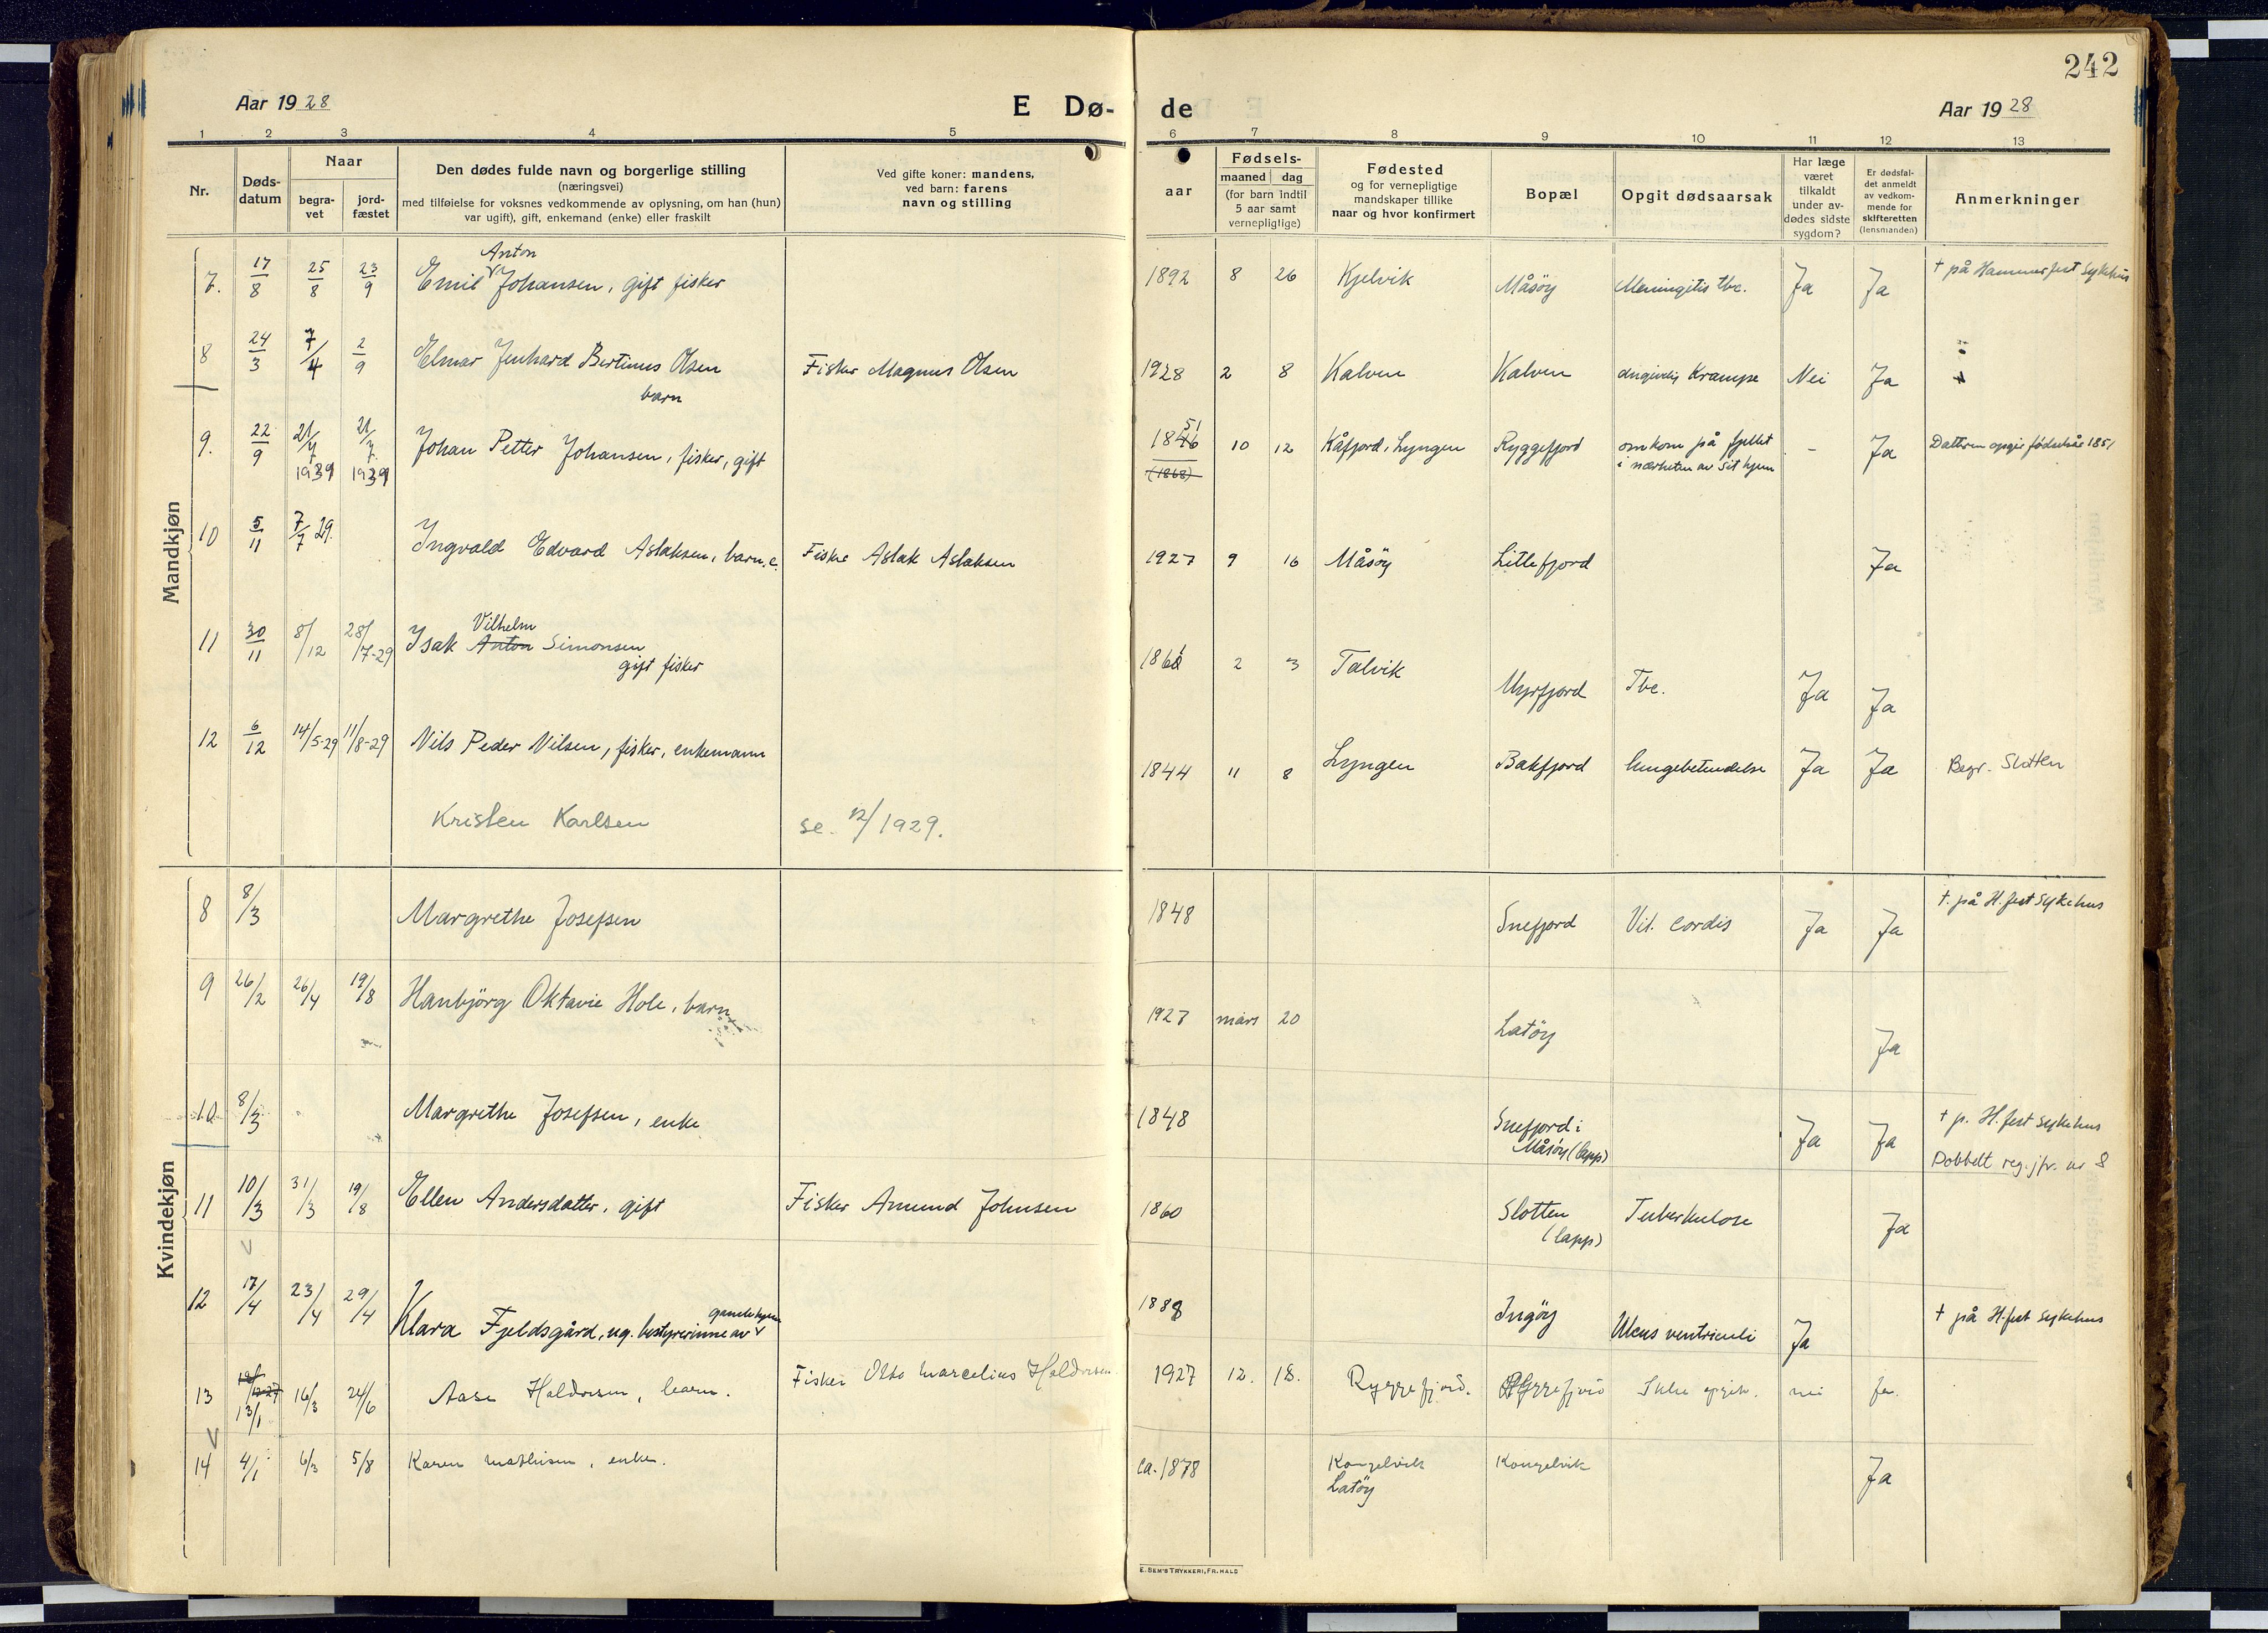 242
Aar 1928
E Dø-
de
Aar 1928
1 2 3 4 5 6 7 8 9 10 11 12 13
Nr.
Døds-
datum
Naar
begra-
vet
jord-
fæstet
Den dødes fulde navn og borgerlige stilling
(næringsvei)
med tilføielse for voksnes vedkommende av oplysning, om han (hun)
var ugift), gift, enkemand (enke) eller fraskilt
Ved gifte koner: mandens,
ved barn: farens
navn og stilling
aar
Fødsels-
maaned dag
(for barn indtil
5 aar samt
vernepligtige)
Fødested
og for vernepligtige
mandskaper tillike
naar og hvor konfirmert
Bopæl
Opgit dødsaarsak
Har læge
været
tilkaldt
under av-
dødes sidste
sygdom?
Er dødsfal-
det anmeldt
av vedkom-
mende for
skifteretten
(lensmanden)
Anmerkninger
Mandkjøn
7. 17/8 25/8 23/9 Emil Anton Johansen, gift fisker 1892 8 26 Kjelvik Måsöy Meningitis tbc. Ja Ja † på Hammerfest Sykehus
8 24/3 7/4 2/9 Elmar Jenhard Bertinus Olsen
barn
Fisker Magnus Olsen 1928 2 8 Kalven Kalven angivelig Krampe Nei Ja
9. 22/9 21/7 1939 21/7 1939 Johan Petter Johansen, fisker, gift 1846 51 (1868) 10 12 Kåfjord, Lyngen Ryggefjord omkom på fjellet
i nærheten av sit hjem
- Ja Datteren opgir fødselsår 1851
10 5/11 7/7 29. Ingvald Edvard Aslaksen, barn. e. Fisker Aslak Aslaksen 1927 9 16 Måsöy Litlefjord Ja
11 30/11 8/12 28/7-29 Isak Anton Vilhelm Simonsen
gift fisker
2 3 Talvik Myrfjord Tbc. Ja Ja
12 6/12 14/5-29 11/8-29 Nils Peder Nilsen, fisker, enkemann 1844 11 8 Lyngen Bakfjord lungebetendelse Ja Ja Begr. Slotten
Kristen Karlsen se. 12/1929.
Kvindekjøn
8 8/3 Margrethe Josefsen 1848 Snefjord Vit. cordis Ja Ja †. på H.fest Sykehus
9 26/2 26/4 19/8 Hanbjörg Oktavie Hole, barn 1927 mars 20 Latöy Ja
10 8/3 Margrethe Josefsen, enke 1848 Snefjord i
Måsöy (lapp)
Ja Ja † p. H.fest sykehus
Dobbelt reg. jfr. nr 8
11 10/3 31/3 19/8 Ellen Andersdatter, gift Fisker Amund Johnsen 1860 Slotten
(lapp)
Tuberkulose Ja
12 17/4 23/4 29/4 Klara Fjeldsgård, ug. bestyrerinne av gamlehjem 1888 Ingöy Ulcus ventriculi Ja † på H.fest sykehus
13 18/12-27 13/1 16/3 24/6 Aase Haldorsen, barn. Fisker Otto Marcelius Haldorsen 1927 12. 18. Ryggefjord. Ryggefjord Ikke opgit. nei ja.
14 4/1 6/3 5/8 Karen Mathisen, enke. ca. 1878 Kongelvik
Latöy
Kongelvik Ja
E. SEM'S TRYKKERI, FR.HALD